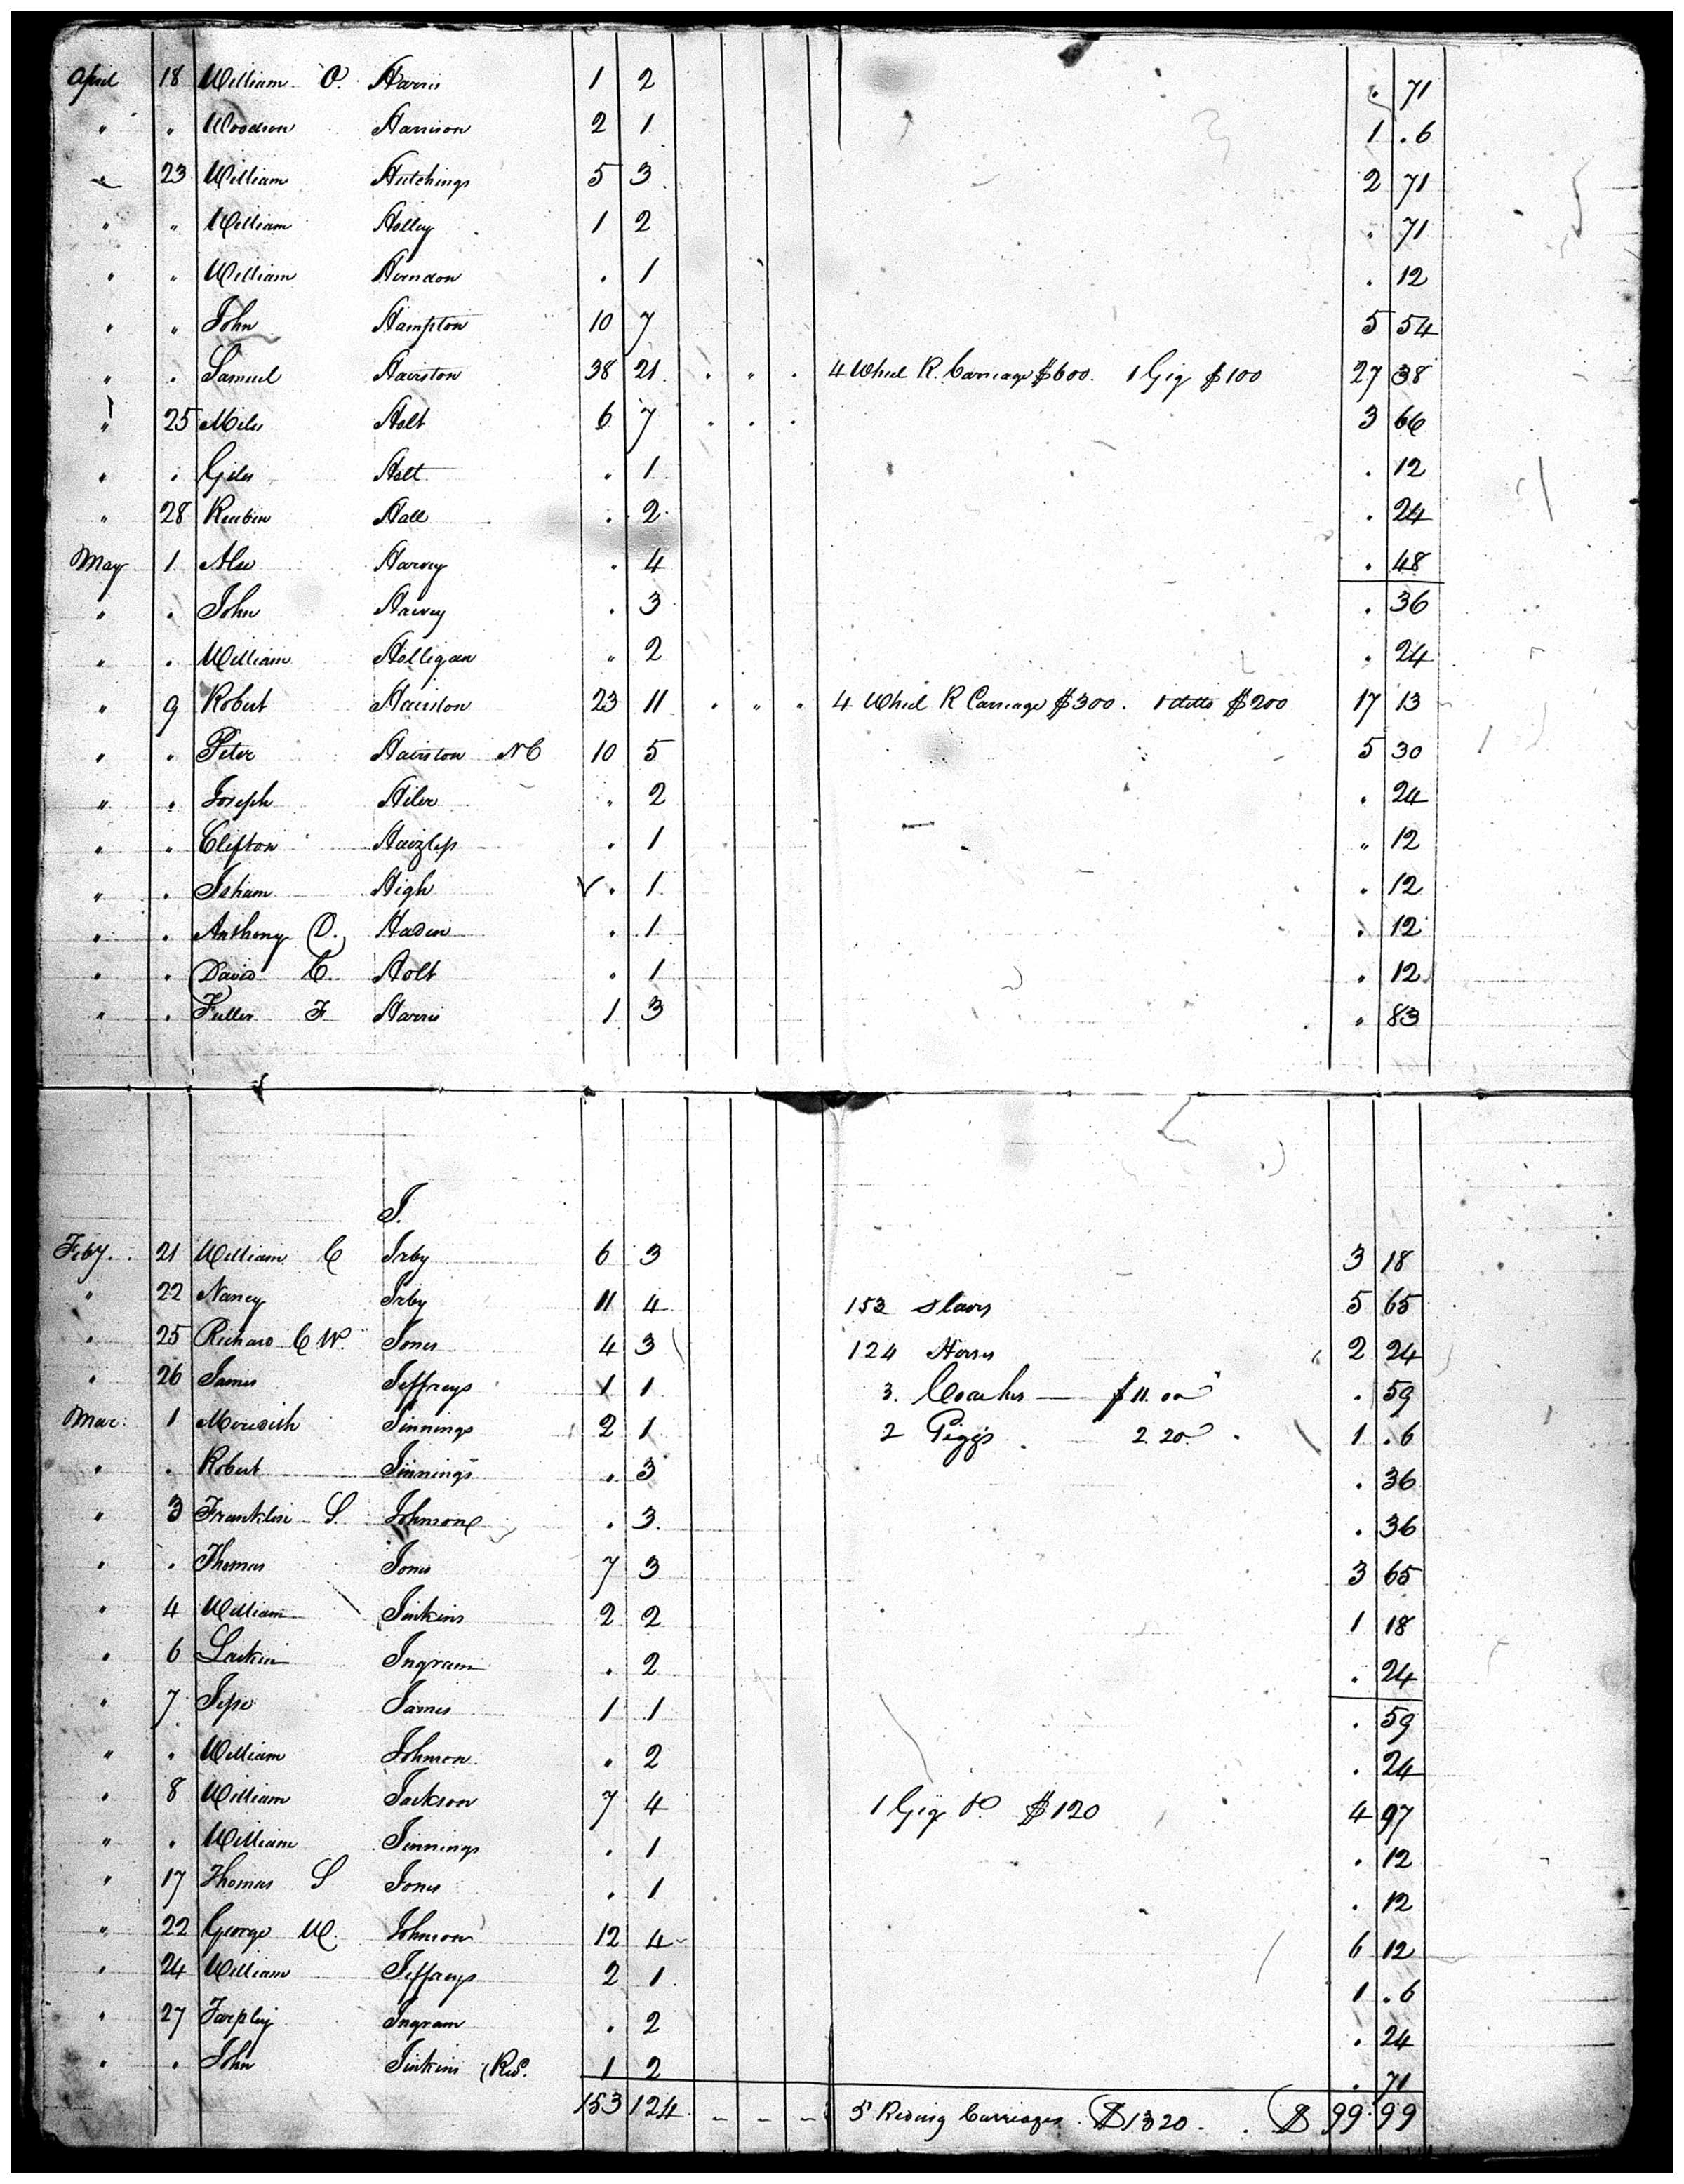 April 18 William O. Harris 1 2 . 71
" " Woodson Harrison 2 1 1 . 6
" 23 William Hutchings 5 3 2 71
" " William Holley 1 2 " 71
" " William Herndon . 1 . 12
" " John Hampton 10 7 5 54
" " Samuel Hairston 38 21 . " . 4 Wheel R. Carriage $600. 1 Gig $100 27 38
" 25 Miles Holt 6 7 . . . 3 66
" . Giles Holt . 1 . 12
" 28 Reuben Hall . 2 . 24
May 1 Harvey . 4 . 48
" . John Harvey . 3 . 36
" . William Holligan " 2 . 24
" 9 Robert Hairston 23 11 . " . 4 Wheel R Carriage $300. 1 ditto $200 17 13
" " Peter Hairston NC 10 5 5 30
" . Joseph Hiler " 2 . 24
" " Clifton Haizlip . 1 " 12
" . Isham High . 1 . 12
" . Anthony O. Haden . 1 . 12
" . David C. Holt " 1 . 12
" . Fuller F Harris 1 3 " 83
J.
Feby. 21 William C Irby 6 3 3 18
" 22 Nancy Irby 11 4 153 Slaves 5 65
" 25 Richard C W. Jones 4 3 124 Horses 2 24
" 26 James Jeffreys 1 1 3. Coaches — $11.00 . 59
Mar: 1 Meredith Jinnings 2 1 2 Giggs 2.20 1 . 6
" . Robert Jinnings . 3 . 36
" 3 Franklin S. Johnson . 3. . 36
" . Thomas Jones 7 3 3 65
" 4 William Jinkins 2 2 1 18
" 6 Larkin Ingram . 2 . 24
" 7 Jesse James 1 1 . 59
" " William Johnson " 2 . 24
" 8 William Jackson 7 4 1 Gig Do. $120 4 97
" . William Jinnings . 1 . 12
" 17 Thomas S Jones . 1 . 12
" 22 George W. Johnson 12 4 6 12
" 24 William Jeffreys 2 1 1 . 6
" 27 Tarpley Ingram . 2 . 24
" . John Jinkins (Rd. 1 2 . 71
153 124 - - - 5 Riding Carriages $1320. $ 99 99